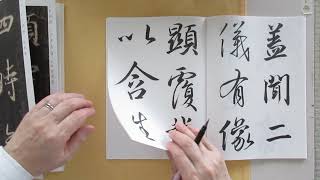 蓋聞二
儀有像
顯覆
以含生
四時